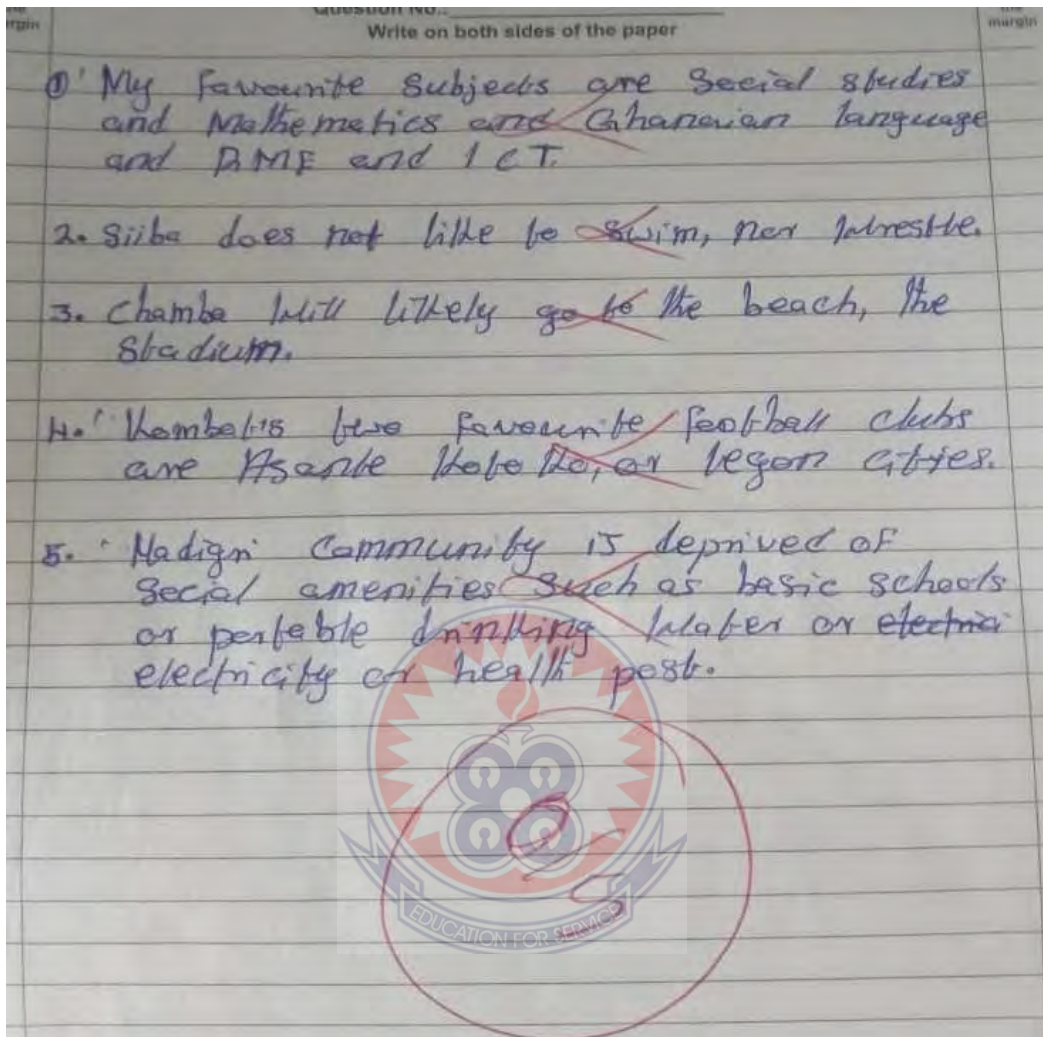 Question No.:
margin
Write on both sides of the paper
margin
① My favourite subjects are Social studies
and Mathematics and Ghanaian language
and RME and ICT.
2. Siiba does not like to swim, nor wrestle.
3. Chamba will likely go to the beach, the
stadium.
4. Kombat's two favourite football clubs
are Asante Kotoko, or legon cities.
5. Nadigri community is deprived of
Social amenities such as basic schools
or portable drinking water or electrici
electricity or health post.
0
5
EDUCATION FOR SERVICE